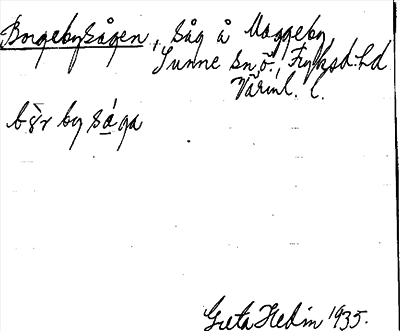 Borgebysågen, såg å Maggeby
Sunne sn ö., Fryksd. hd
Värml. l.
bŏ̀r by sága
Greta Hedin 1935.